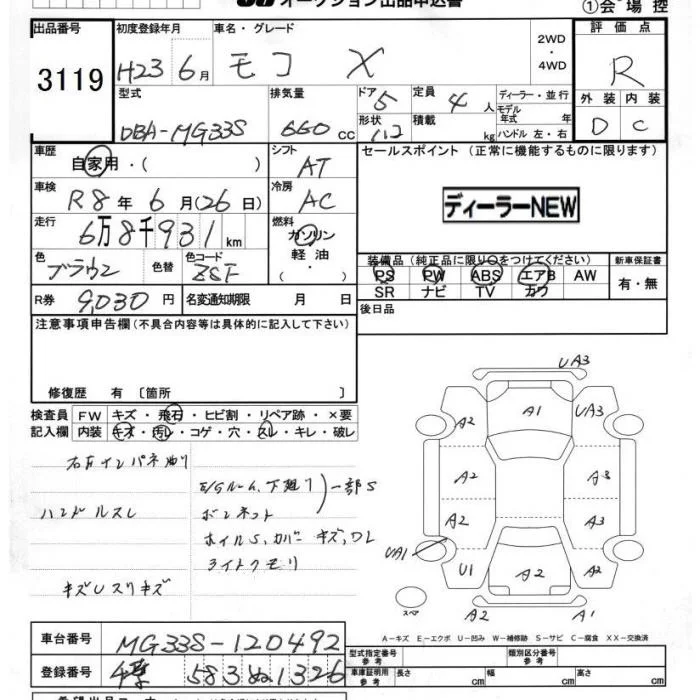 オークション出品申込書
①会場控
出品番号
3119
初度登録年月
H23 6月
車名・グレード
モコ X
2WD
・
4WD
評価点
R
外装 内装
D C
型式
DBA-MG33S
排気量
660 cc
ドア 5
形状
定員 4 人
積載 kg
ディーラー・並行
モデル年式 年
ハンドル 左・右
車歴
自家用・( )
シフト
AT
車検
R8年6月(26日)
冷房
AC
セールスポイント (正常に機能するものに限ります)
ディーラーNEW
走行
6万8千931km
燃料
ガソリン
軽油
・
色
ブラウン
色替
色コード
ZSF
装備品(純正品に限り○をつけてください)
新車保証書
PS PW ABS エアB AW
SR ナビ TV カワ
有・無
R券 9,030円
名変通知期限 月 日
後日品
注意事項申告欄(不具合内容等は具体的に記入して下さい)
修復歴 有 [箇所 ]
検査員記入欄
FW キズ・飛石・ヒビ割・リペア跡・×要
内装 キズ・汚レ・コゲ・穴・スレ・キレ・破レ
E/Gルーム、下廻り 一部S
ハンドルスレ
ボンネット
ホイルS、カバー キズ、ワレ
ライトクモリ
キズUスリキズ
UA3
A2 A1 UA3
A2 A3
A2 A3
UA1
U1 A2 A2
スペア
A2 A1
A-キズ E-エクボ U-凹み W-補修跡 S-サビ C-腐食 XX-交換済
車台番号
MG33S-120492
登録番号
583 ぬ 1326
型式指定番号
参考
類別区分番号
参考
車庫証明用
参考
長さ cm 幅 cm 高さ cm